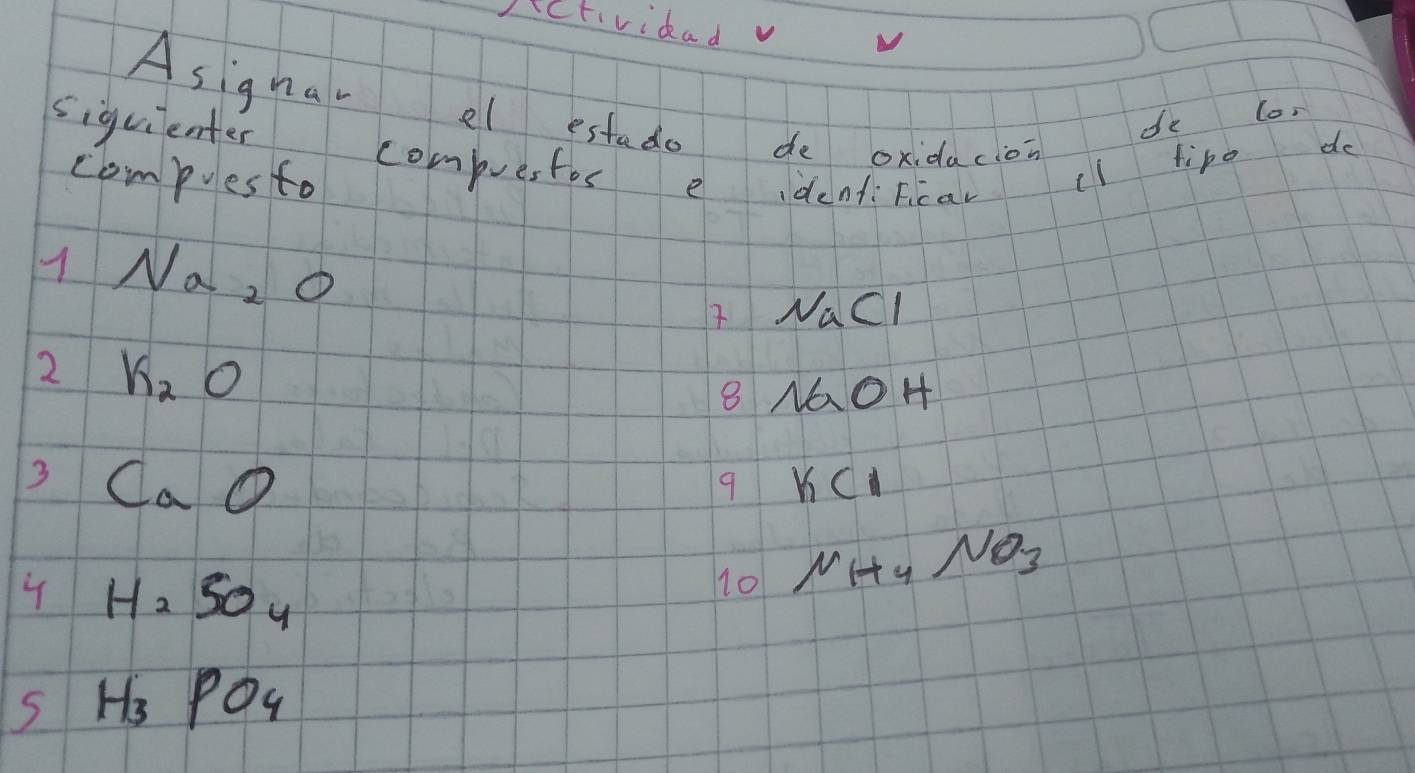 Actividad
Asignar el estado de oxidación de los
siguientes compuestos e identificar el tipo de
compuesto
1 Na2O
2 K2O
3 CaO
4 H2SO4
5 H3PO4
7 NaCl
8 NaOH
9 KCl
10 NH4NO3